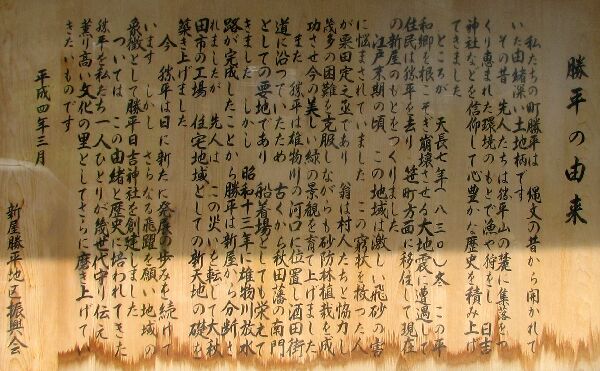 勝平の由来
私たちの町勝平は 縄文の昔から開かれて
いた由緒深い土地柄です
その昔 先人たちは勝平山の麓に集落をつ
くり恵まれた環境のもとで漁や狩をし 日吉
神社などを信仰して心豊かな歴史を積み上げ
てきました
ところが 天長七年（八三〇）冬 この平
和郷を根こそぎ崩壊させる大地震に遭遇して
住民は勝平を去り 笹町方面に移住して現在
の新屋のもとをつくりました
江戸末期の頃 この地域は激しい飛砂の害
に悩まされていました この窮状を救った人
が栗田定之丞であり 翁は村人たちと協力し
幾多の困難を克服しながらも砂防林植栽を成
功させ今の美しい緑の景観を育て上げました
また 勝平は雄物川の河口に位置し酒田街
道に沿っていたため 古くから秋田藩の南門
としての要地であり 船着場としても栄えて
きました しかし 昭和十三年に雄物川放水
路が完成したことから勝平は新屋から分断さ
れましたが 先人は この災いを転して大秋
田市の工場 住宅地域としての新天地の礎を
築き上げました
今 勝平は日に新たに発展の歩みを続けて
います しかし さらなる飛躍を願い地域の
象徴として勝平日吉神社を創建しました
ついては この由緒と歴史に培われてきた
勝平を私たち一人ひとりが幾世代守り伝え
薫り高い文化の里としてさらに磨き上げてい
きたいものです
平成四年三月
新屋勝平地区振興会